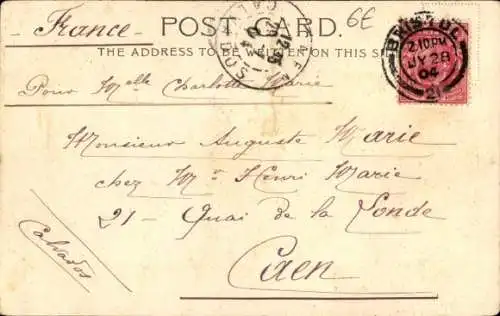 France
POST CARD.
6E
THE ADDRESS TO BE WRITTEN ON THIS SIDE
BRISTOL
2.10 PM
JY 28
04
21
CAEN
CALVADOS
Pour Melle Charlotte Marie
Monsieur Auguste Marie
chez Mr Henri Marie
21 - Quai de la Londe
Caen
Calvados